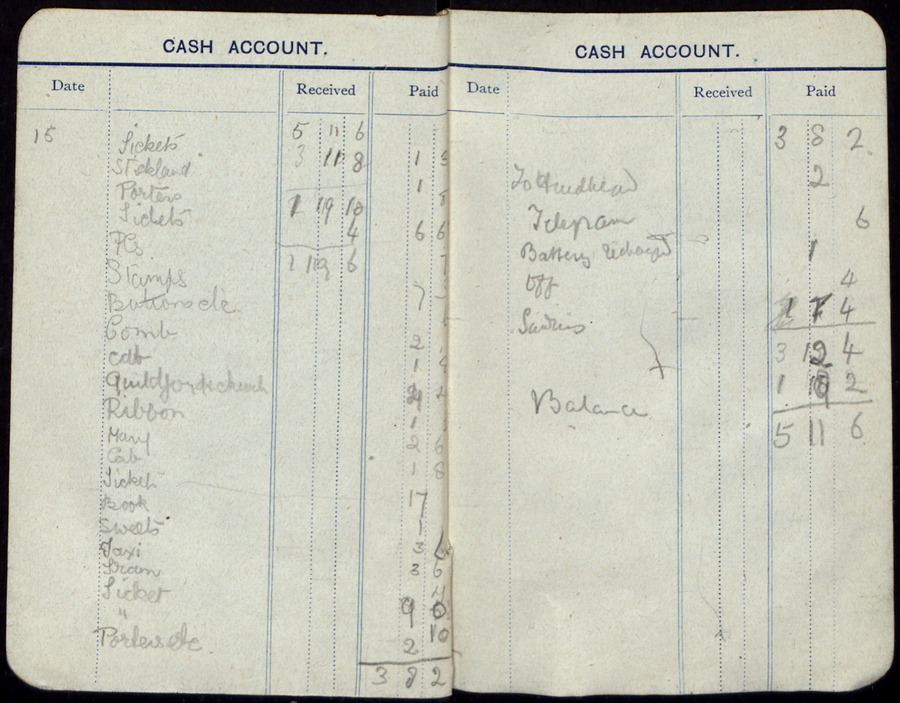 CASH ACCOUNT.
Date Received Paid
15 Tickets 5 11 6
Stickland 3 11 8 1
Porters 1
Tickets 1 19 10
PCs 4 6 6
Stamps 1 19 6
Buttons etc 7
Comb
cab 2
Guildford & church 1
Ribbon
Mary 1
Cab 2 6
Ticket 1 8
Book 17
Sweets 1
Taxi 3
Tram 3 6
Ticket
" 9 0
Porters etc 2 10
3 8 2
CASH ACCOUNT.
Date Received Paid
3 8 2
To Hindhead 2
Telegram 6
Battery recharged 1
Off 4
Sundries 4
3 12 4
Balance 1 19 2
5 11 6